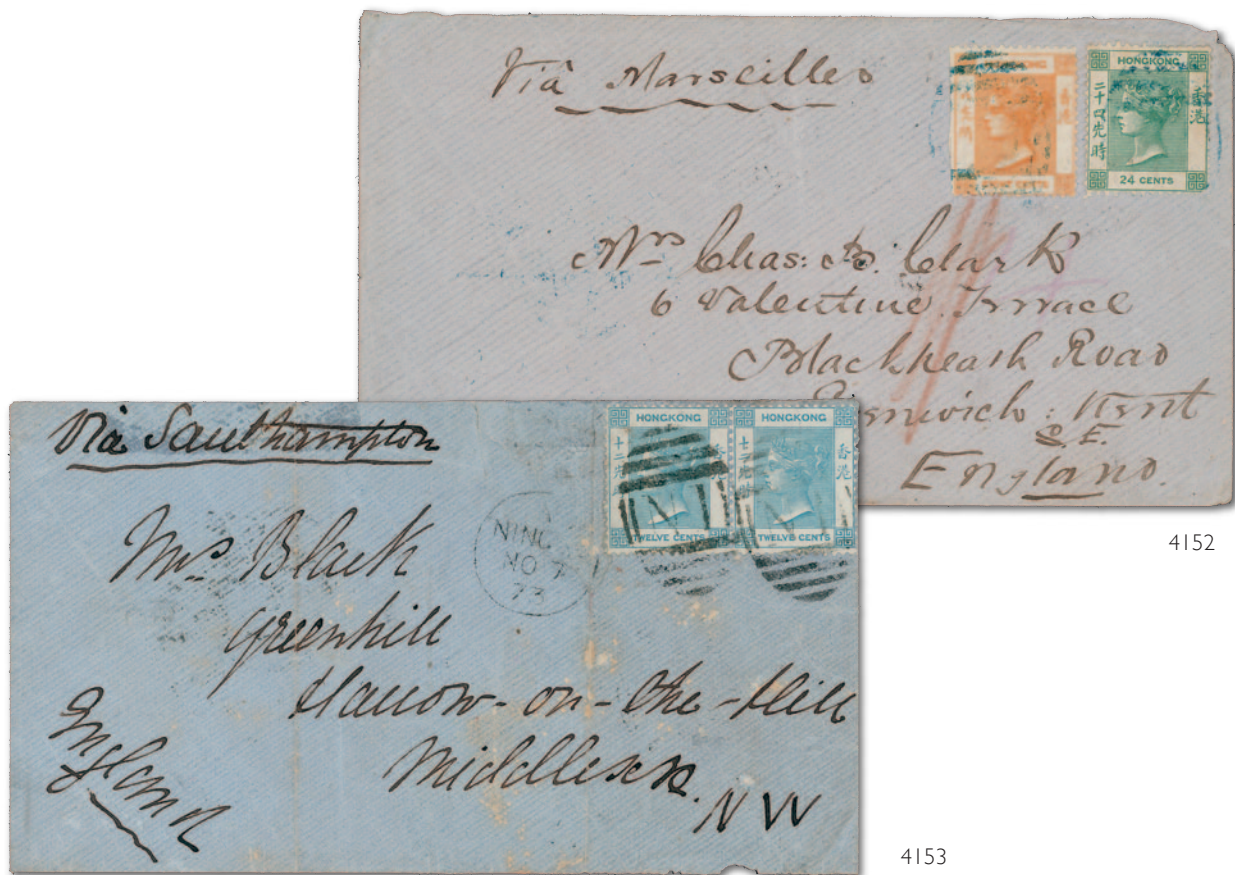 Viâ Marseilles
HONGKONG
二十四先時
香港
24 CENTS
香港
Mrs Chas: B. Clark
6 Valentine Terrace
Blackheath Road
Greenwich: Kent
S.E.
England.
4152
Via Southampton
HONGKONG
十二先時
香港
TWELVE CENTS
HONGKONG
十二先時
香港
TWELVE CENTS
N1
N1
NING
NO 7
73
Mrs Black
Greenhill
Harrow-on-the-Hill
Middlesex.
NW
England
4153